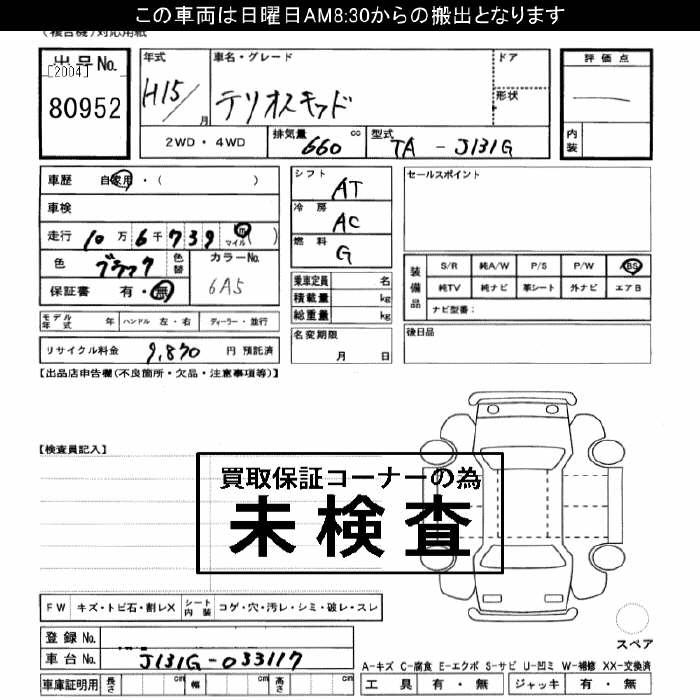 この車両は日曜日AM8:30からの搬出となります
(複合機)対応用紙
出品No.
[2004]
80952
年式
H15/
月
車名・グレード
テリオスキッド
ドア
形状
評価点
内装
2WD・4WD
排気量
660
cc
型式
TA - J131G
車歴 自家用・( )
車検
走行 10万6千739 m マイル( )
色 ブラック
色替
カラーNo.
6A5
保証書 有・無
モデル年式 年 ハンドル 左・右 ディーラー・並行
リサイクル料金 9,870 円 預託済
シフト
AT
冷房
AC
燃料
G
乗車定員 名
積載量 kg
総重量 kg
名変期限
月 日
セールスポイント
装備品
S/R 純A/W P/S P/W BS
純TV 純ナビ 革シート 外ナビ エアB
ナビ型番:
後日品
【出品店申告欄(不良箇所・欠品・注意事項等)】
【検査員記入】
買取保証コーナーの為
未検査
FW キズ・トビ石・割レX シート内装 コゲ・穴・汚レ・シミ・破レ・スレ
登録No.
車台No. J131G-033117
車庫証明用 長さ cm 幅 cm 高さ cm
スペア
A-キズ C-腐食 E-エクボ S-サビ U-凹ミ W-補修 XX-交換済
工具 有・無 ジャッキ 有・無